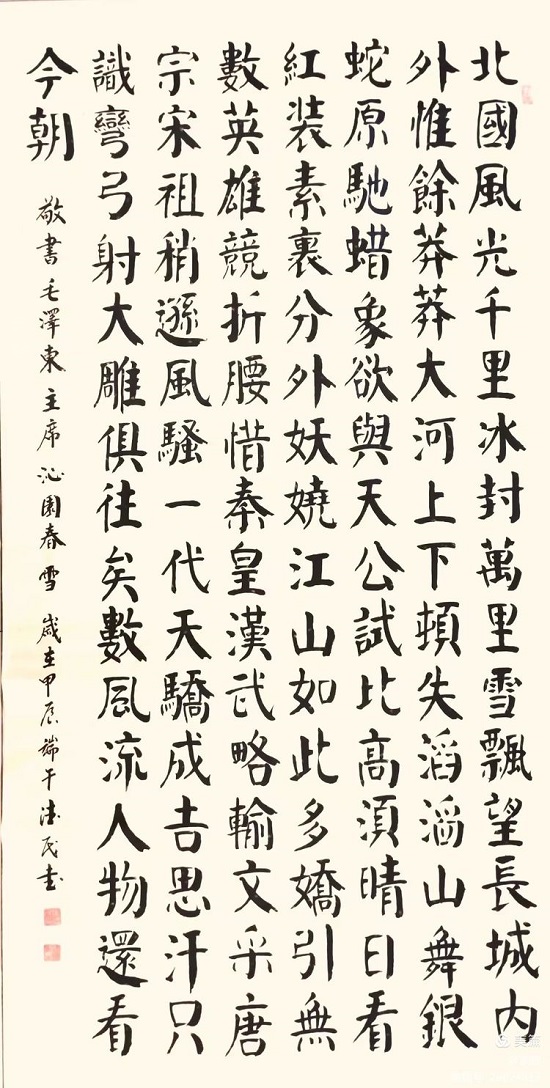 北國風光千里冰封萬里雪飄望長城内
外惟餘莽莽大河上下頓失滔滔山舞銀
蛇原馳蜡象欲與天公試比高須晴日看
紅装素裹分外妖嬈江山如此多嬌引無
數英雄競折腰惜秦皇漢武略輸文采唐
宗宋祖稍遜風騷一代天驕成吉思汗只
識彎弓射大雕俱往矣數風流人物還看
今朝
敬書毛澤東主席沁園春雪 歲在甲辰端午德民書
美篇